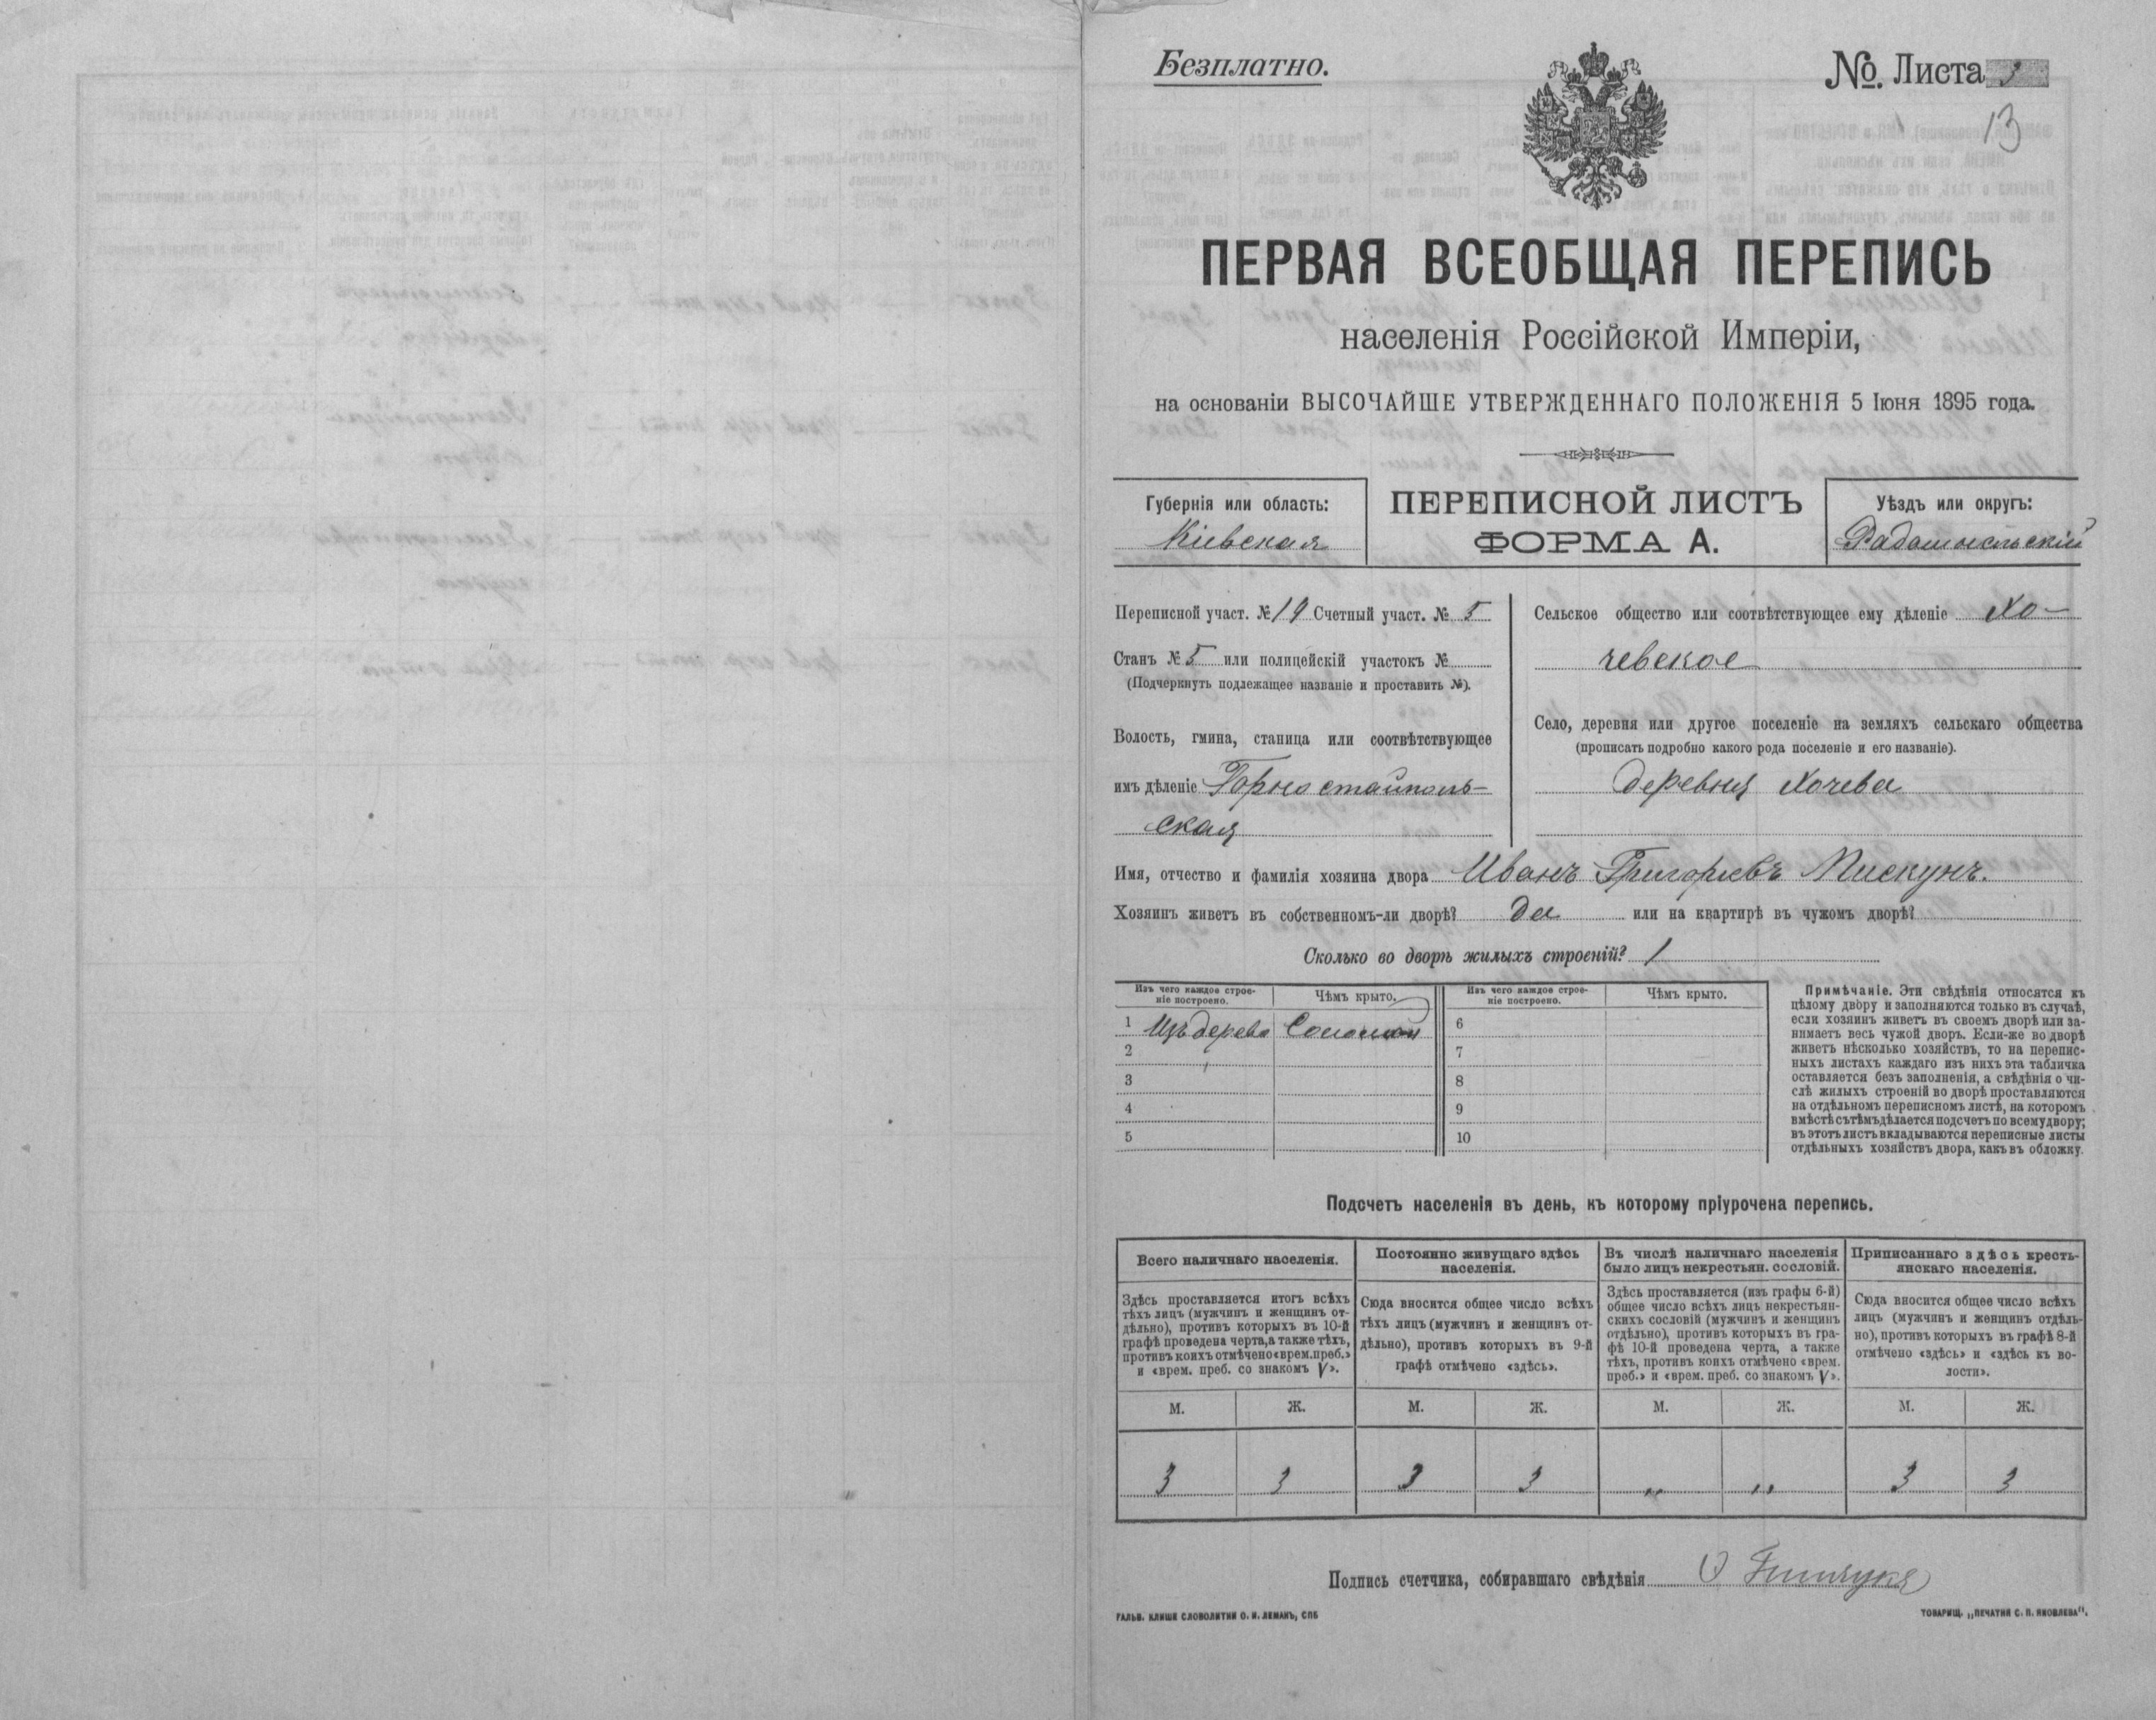 Безплатно.
№. Листа 3
13
ПЕРВАЯ ВСЕОБЩАЯ ПЕРЕПИСЬ
населенія Россійской Имперіи,
на основаніи ВЫСОЧАЙШЕ УТВЕРЖДЕННАГО ПОЛОЖЕНІЯ 5 Іюня 1895 года.
Губернія или область:
Кіевская
ПЕРЕПИСНОЙ ЛИСТЪ
ФОРМА А.
Уѣздъ или округъ:
Радомысльскій
Переписной участ. № 19 Счетный участ. № 5
Станъ № 5 или полицейскій участокъ №
(Подчеркнуть подлежащее названіе и проставить №).
Волость, гмина, станица или соотвѣтствующее
имъ дѣленіе Горностайполь-
ская
Сельское общество или соотвѣтствующее ему дѣленіе Хо-
чевское
Село, деревня или другое поселеніе на земляхъ сельскаго общества
(прописать подробно какого рода поселеніе и его названіе).
деревня Хочева
Имя, отчество и фамилія хозяина двора Иванъ Григорьевъ Пискунъ.
Хозяинъ живетъ въ собственномъ-ли дворѣ? да или на квартирѣ въ чужомъ дворѣ?
Сколько во дворѣ жилыхъ строеній? 1
Изъ чего каждое строе-
ніе построено.
Чѣмъ крыто.
Изъ чего каждое строе-
ніе построено.
Чѣмъ крыто.
1 Изъ дерева Соломой
2
3
4
5
6
7
8
9
10
Примѣчаніе. Эти свѣдѣнія относятся къ
цѣлому двору и заполняются только въ случаѣ,
если хозяинъ живетъ въ своемъ дворѣ или за-
нимаетъ весь чужой дворъ. Если-же во дворѣ
живетъ нѣсколько хозяйствъ, то на перепис-
ныхъ листахъ каждаго изъ нихъ эта табличка
оставляется безъ заполненія, а свѣдѣнія о чи-
слѣ жилыхъ строеній во дворѣ проставляются
на отдѣльномъ переписномъ листѣ, на которомъ
вмѣстѣ съ тѣмъ дѣлается подсчетъ по всему двору;
въ этотъ листъ вкладываются переписные листы
отдѣльныхъ хозяйствъ двора, какъ въ обложку.
Подсчетъ населенія въ день, къ которому пріурочена перепись.
Всего наличнаго населенія.
Здѣсь проставляется итогъ всѣхъ
тѣхъ лицъ (мужчинъ и женщинъ от-
дѣльно), противъ которыхъ въ 10-й
графѣ проведена черта, а также тѣхъ,
противъ коихъ отмѣчено «врем. преб.»
и «врем. преб. со знакомъ V».
Постоянно живущаго здѣсь
населенія.
Сюда вносится общее число всѣхъ
тѣхъ лицъ (мужчинъ и женщинъ от-
дѣльно), противъ которыхъ въ 9-й
графѣ отмѣчено «здѣсь».
Въ числѣ наличнаго населенія
было лицъ некрестьян. сословій.
Здѣсь проставляется (изъ графы 6-й)
общее число всѣхъ лицъ некрестьян-
скихъ сословій (мужчинъ и женщинъ
отдѣльно), противъ которыхъ въ гра-
фѣ 10-й проведена черта, а также
тѣхъ, противъ коихъ отмѣчено «врем.
преб.» и «врем. преб. со знакомъ V».
Приписаннаго здѣсь кресть-
янскаго населенія.
Сюда вносится общее число всѣхъ
лицъ (мужчинъ и женщинъ отдѣль-
но), противъ которыхъ въ графѣ 8-й
отмѣчено «здѣсь» и «здѣсь къ во-
лости».
М. Ж. М. Ж. М. Ж. М. Ж.
3 3 3 3 „ „ 3 3
Подпись счетчика, собиравшаго свѣдѣнія
ГАЛЬВ. КЛИШЕ СЛОВОЛИТНИ О. И. ЛЕМАНЪ, СПБ
ТОВАРИЩ. „ПЕЧАТНЯ С. П. ЯКОВЛЕВА".